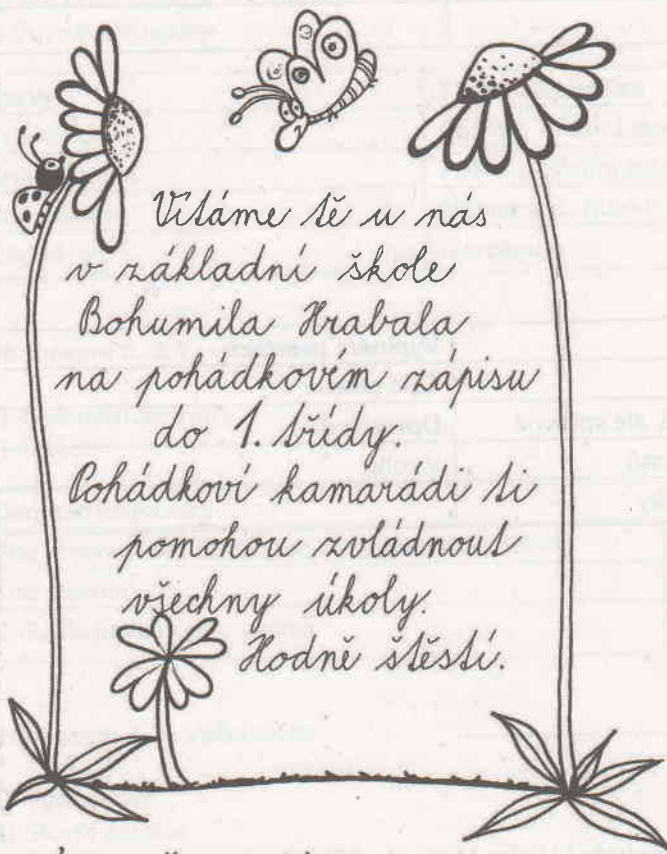 Vítáme tě u nás
v základní škole
Bohumila Hrabala
na pohádkovém zápisu
do 1. třídy.
Pohádkoví kamarádi ti
pomohou zvládnout
všechny úkoly.
Hodně štěstí.